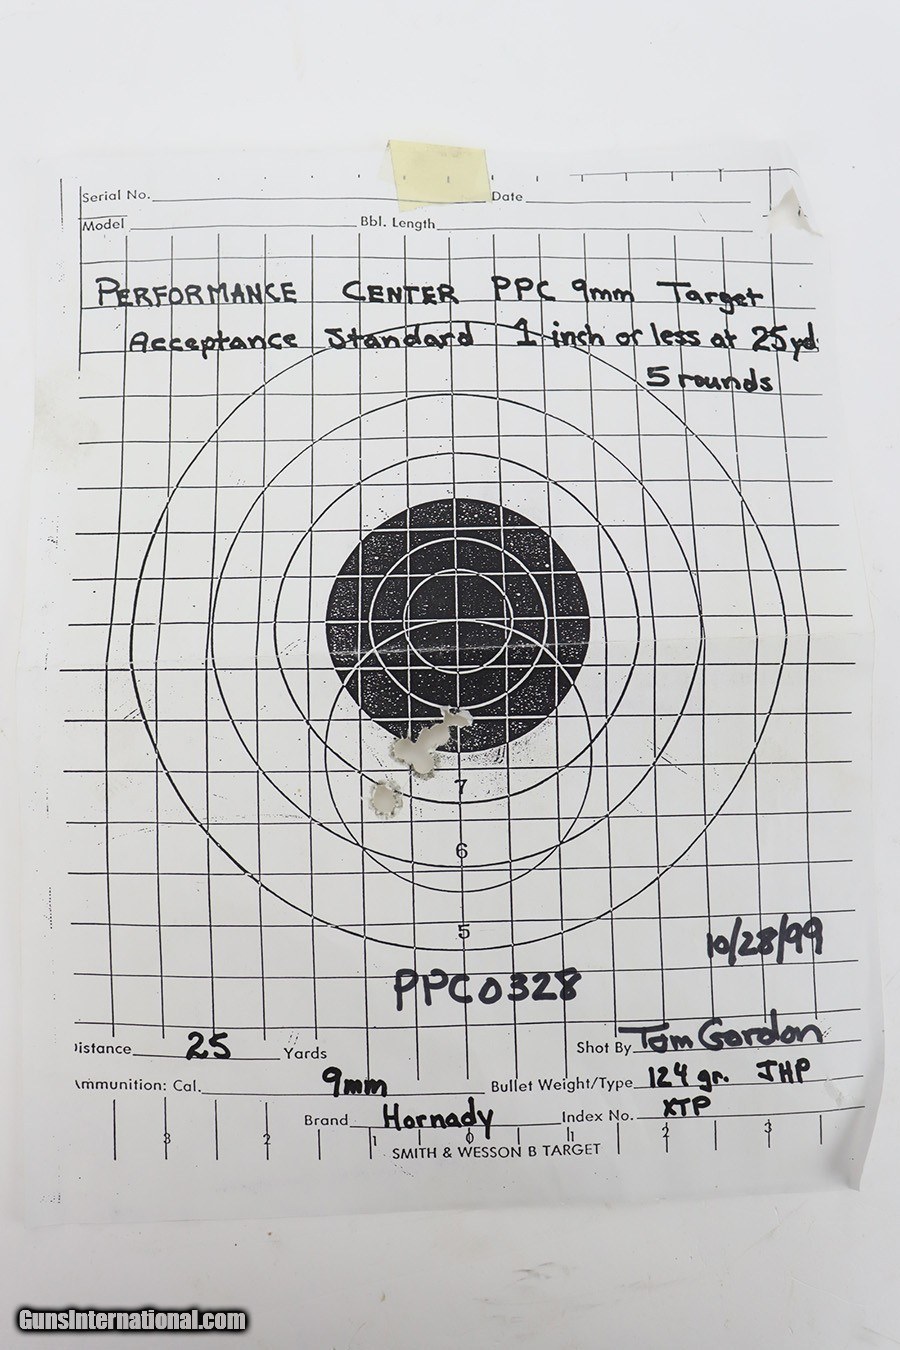 Serial No. Date
Model Bbl. Length
PERFORMANCE CENTER PPC 9mm Target
Acceptance Standard 1 inch or less at 25 yd.
5 rounds
7
6
5
10/28/99
PPC0328
Distance 25 Yards Shot By Tom Gordon
Ammunition: Cal. 9mm Bullet Weight/Type 124 gr. JHP
Brand Hornady Index No. XTP
3 2 1 0 1 2 3
SMITH & WESSON B TARGET
GunsInternational.com